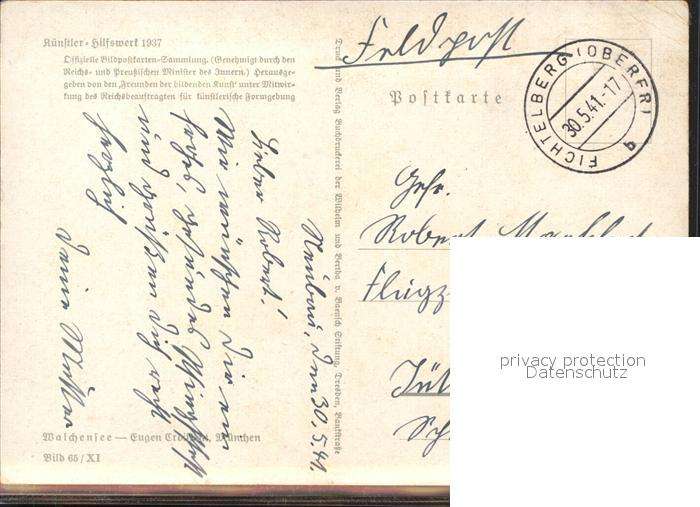 Künstler-Hilfswerk 1937
Offizielle Bildpostkarten-Sammlung. (Genehmigt durch den
Reichs- und Preußischen Minister des Innern.) Herausge-
geben von den „Freunden der bildenden Kunst“ unter Mitwir-
kung des Reichsbeauftragten für künstlerische Formgebung
Feldpost
Postkarte
FICHTELBERG (OBERFR)
30.5.41.-17
b
Druck und Verlag Buchdruckerei der Wilhelm und Bertha v. Baensch Stiftung, Dresden, Bankstraße
Neubau, den 30.5.41.
Lieber Robert!
Wir wünschen Dir ein
frohes, gesundes Pfingstfest
und grüßen Dich recht
herzlich
Deine Mutter
Gefr.
Robert
Flugz
Jüt
Sch
Walchensee — Eugen München
Bild 65/XI
privacy protection
Datenschutz